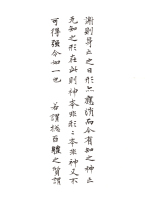 澌則身亡之日形亡觀消而今有知之神亡
无知之形在此則神本非形〻本非神又不
可得強令如一也 若謂揔百體之質謂